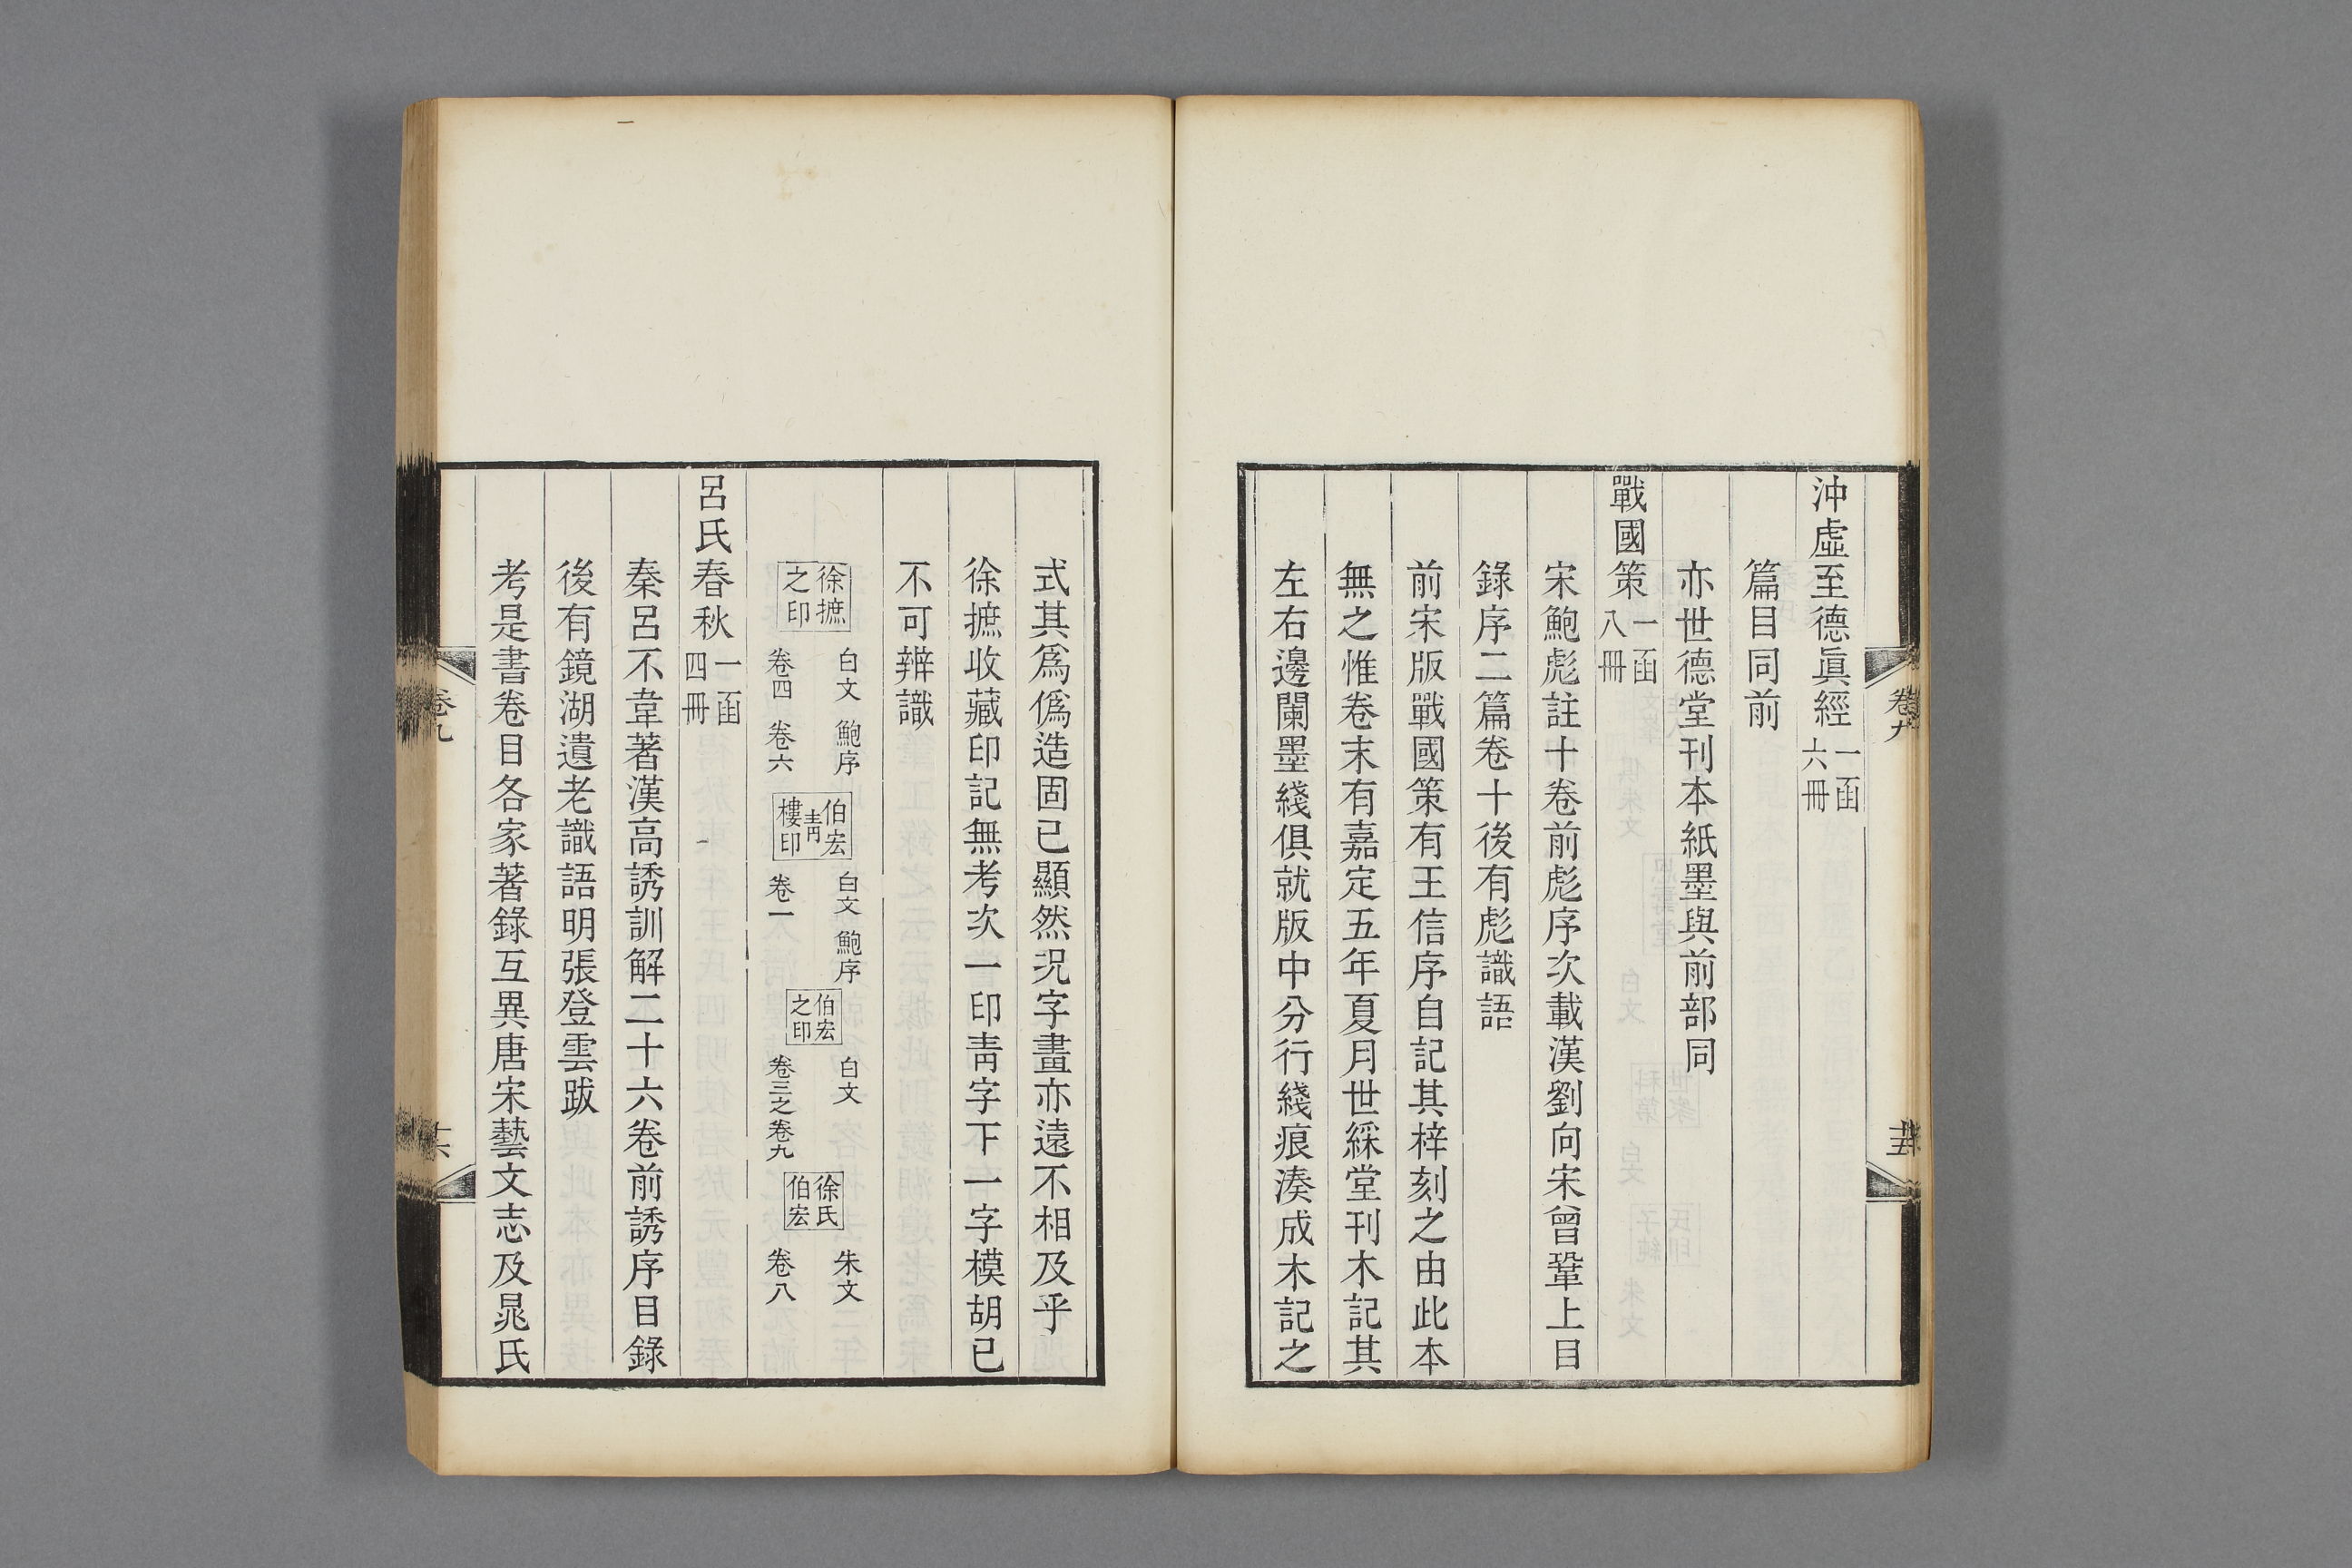 沖虛至德眞經一函六冊
篇目同前
亦世德堂刊本紙墨與前部同
戰國策一函八冊
宋鮑彪註十卷前彪序次載漢劉向宋曾鞏上目
錄序二篇卷十後有彪識語
前宋版戰國策有王信序自記其梓刻之由此本
無之惟卷末有嘉定五年夏月世綵堂刊木記其
左右邊闌墨綫俱就版中分行綫痕湊成木記之
卷九
式其爲僞造固已顯然況字畫亦遠不相及乎
徐摭收藏印記無考次一印靑字下一字模胡已
不可辨識
徐摭之印
白文 鮑序
卷四 卷六
伯宏靑樓印
白文 鮑序
卷一
伯宏之印
白文
卷三之卷九
徐氏伯宏
朱文
卷八
呂氏春秋一函四冊
秦呂不韋著漢高誘訓解二十六卷前誘序目錄
後有鏡湖遺老識語明張登雲跋
考是書卷目各家著錄互異唐宋藝文志及晁氏
卷九